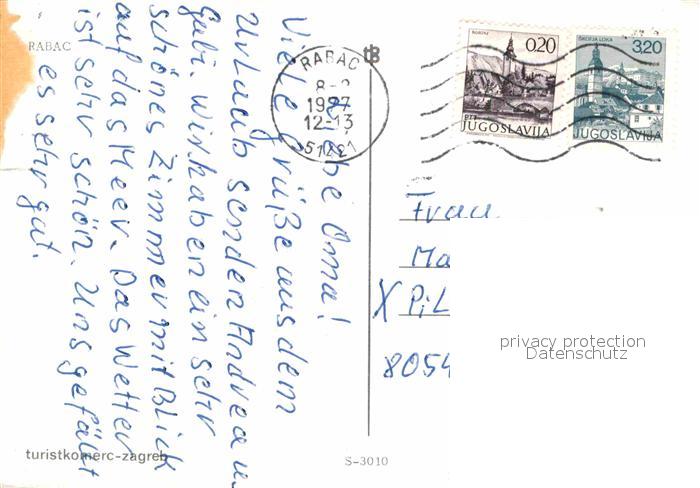 RABAC
Liebe Oma!
Viele Grüße aus dem
Urlaub senden Andrea u.
Gabi. Wir haben ein sehr
schönes Zimmer mit Blick
auf das Meer. Das Wetter
ist sehr schön. Uns gefällt
es sehr gut.
turistkomerc-zagreb
S-3010
tB
RABAC
8-8
1977
12-13
51221
0.20
PTT
JUGOSLAVIJA
ŠKOFJA LOKA
3.20
JUGOSLAVIJA
Frau
Ma
X PiL
8054
privacy protection
Datenschutz